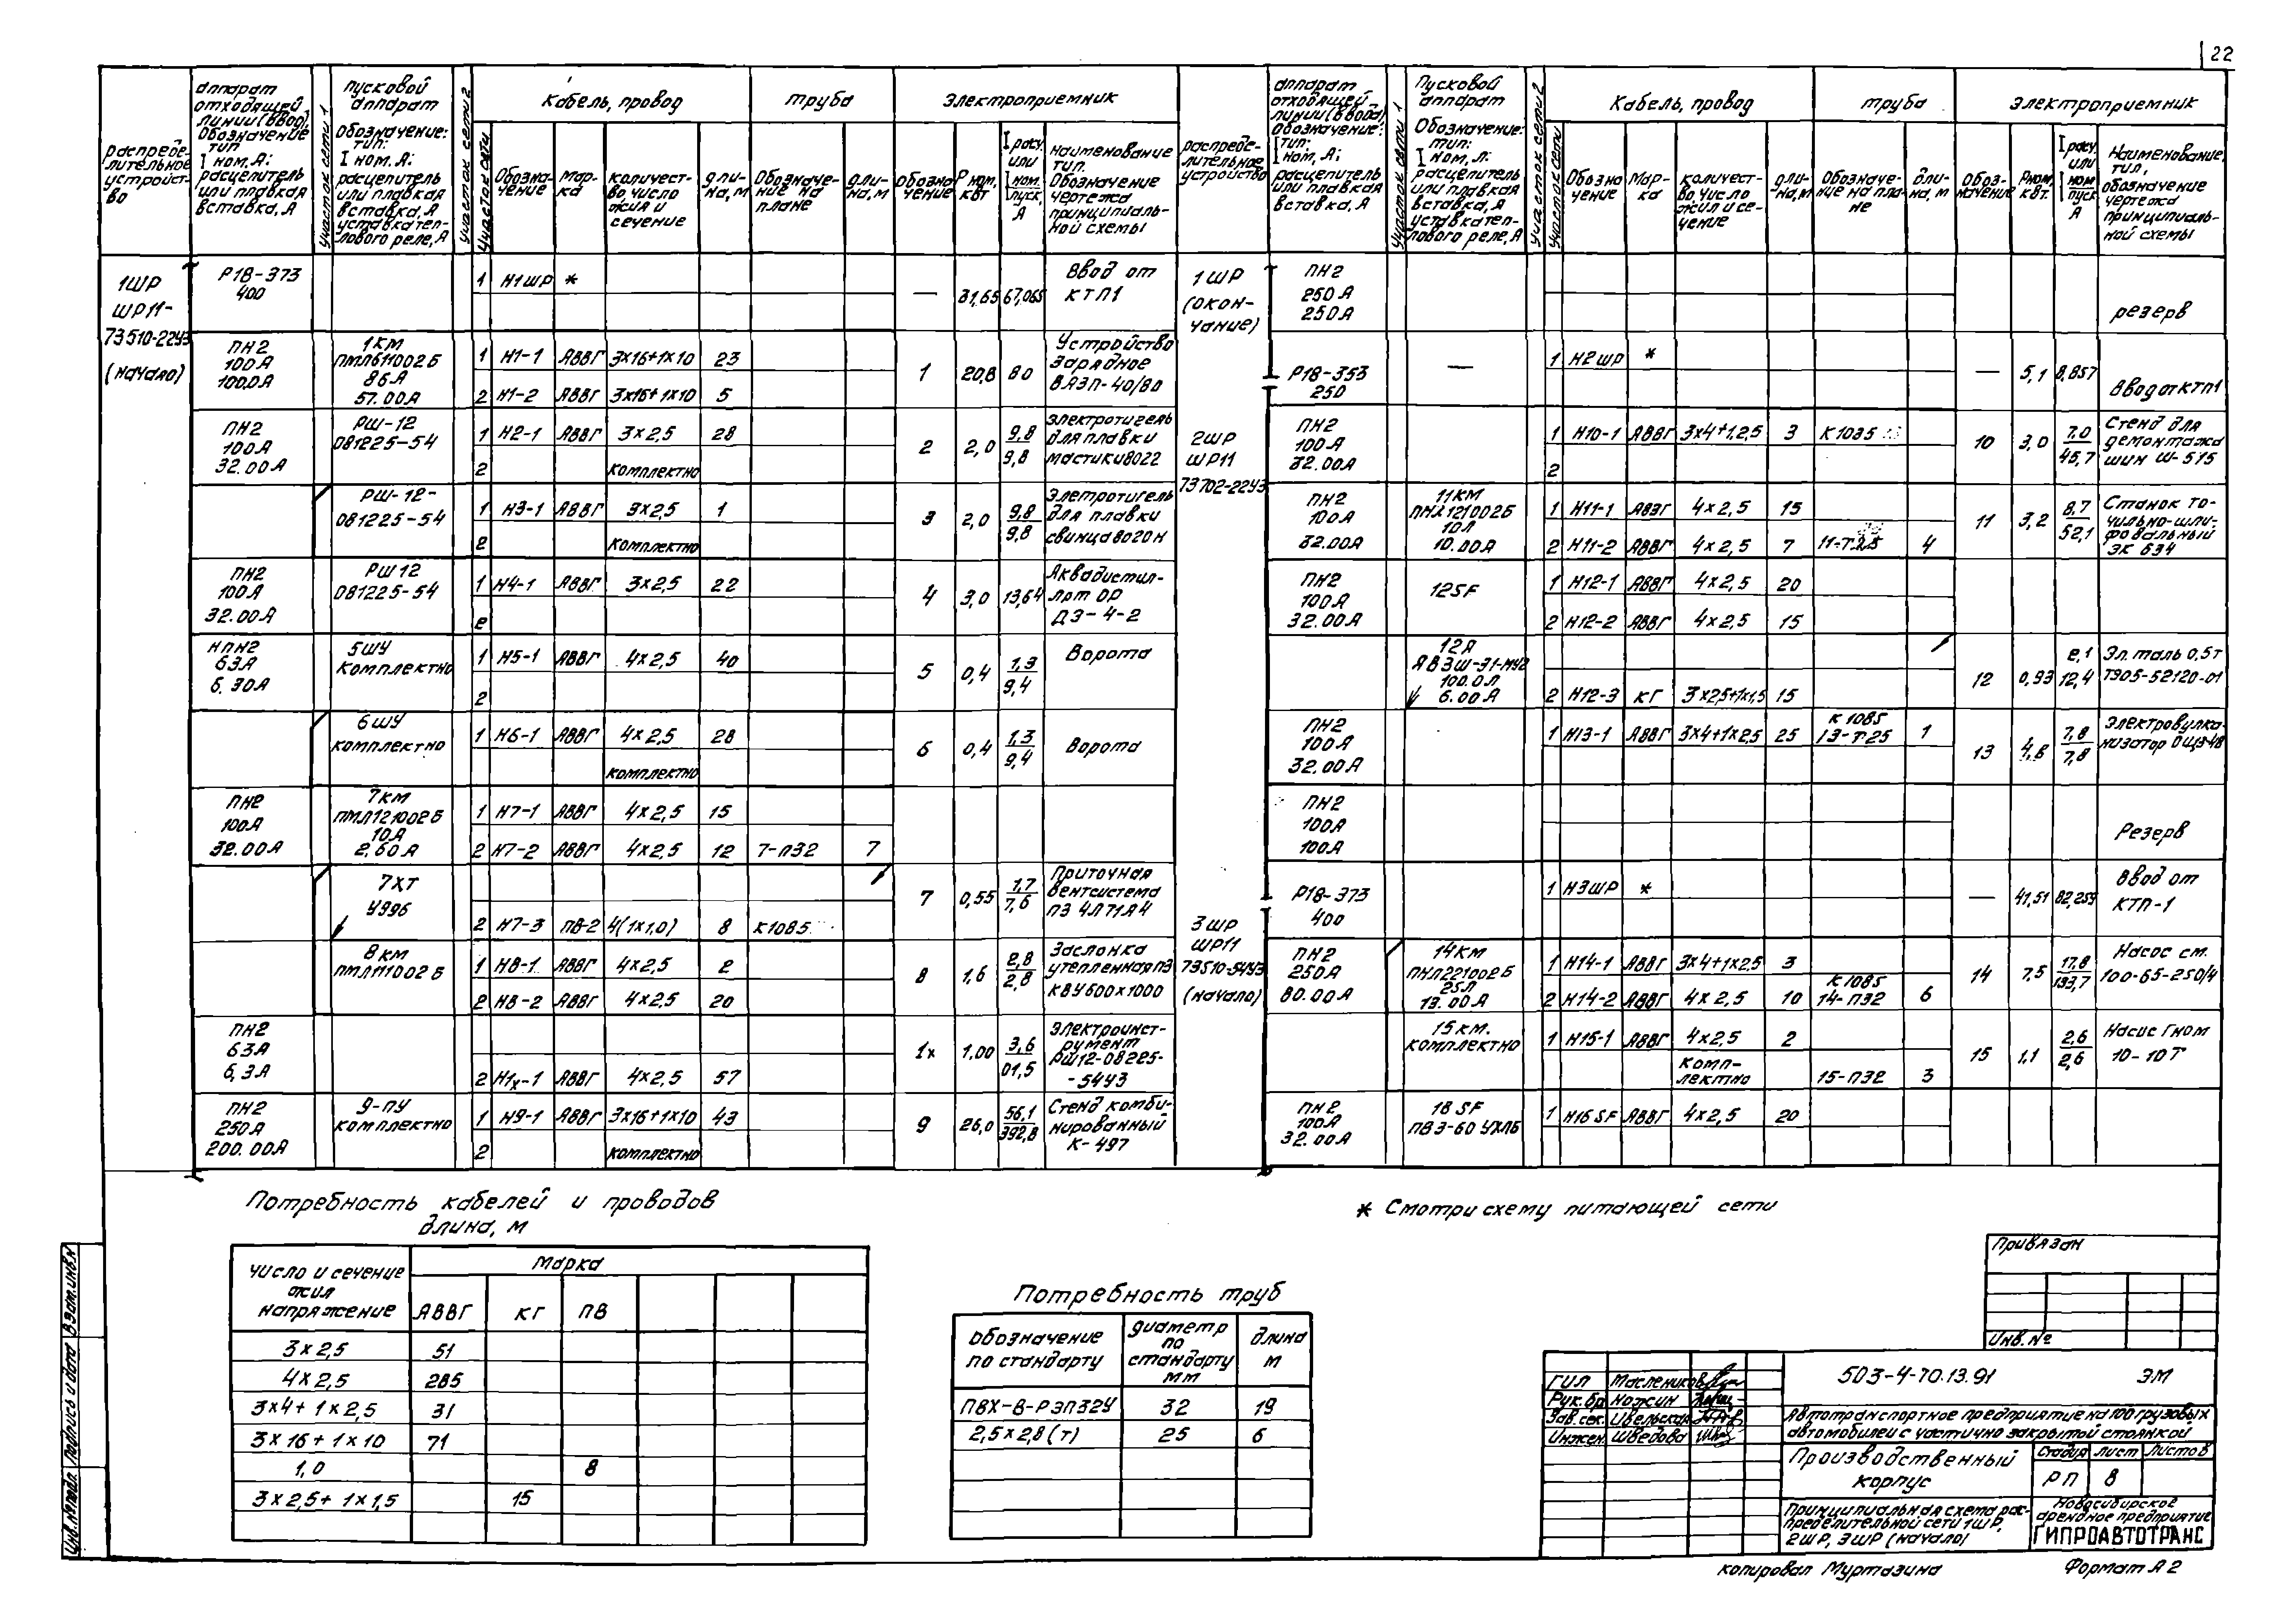 22
Распреде-
лительное
устройст-
во
аппарат
отходящей
линии (ввод),
Обозначение
тип
I ном, А;
расцепитель
или плавкая
вставка, А
участок сети 1
пусковой
аппарат
Обозначение:
тип:
I ном. А:
расцепитель
или плавкая
вставка, А
уставка теп-
лового реле, А
участок сети 2
Участок сети
Кабель, провод
Обозна-
чение
Мар-
ка
количест-
во, число
жил и
сечение
дли-
на, м
труба
Обозначе-
ние на
плане
дли-
на, м
Электроприемник
Обозна
чение
Р ном,
кВт
I расч
или
I ном
I пуск,
А
Наименование
тип.
Обозначение
чертежа
принципиаль-
ной схемы
1ШР
ШР11-
73510-22У3
(начало)
Р18-373
400
1 Н1ШР *
— 31,65 67,065
Ввод от
КТП1
ПН2
100А
100.0А
1КМ
ПМЛ611002Б
86А
57.00А
1 Н1-1 АВВГ 3x16+1x10 23
2 Н1-2 АВВГ 3x16+1x10 5
1 20,8 80
Устройство
зарядное
ВАЗП-40/80
ПН2
100А
32.00А
РШ-12
081225-54
1 Н2-1 АВВГ 3x2,5 28
2 комплектно
2 2,0 9,8
9,8
Электротигель
для плавки
мастики 8022
РШ-12-
081225-54
1 Н3-1 АВВГ 3x2,5 1
2 комплектно
3 2,0 9,8
9,8
Элетротигель
для плавки
свинца 8020Н
ПН2
100А
32.00А
РШ12
081225-54
1 Н4-1 АВВГ 3x2,5 22
2
4 3,0 13,64
Аквадистил-
лятор
ДЭ-4-2
НПН2
63А
6.30А
5ШУ
комплектно
1 Н5-1 АВВГ 4x2,5 40
2
5 0,4 1,3
9,4
Ворота
6ШУ
комплектно
1 Н6-1 АВВГ 4x2,5 28
комплектно
6 0,4 1,3
9,4
Ворота
ПН2
100А
32.00А
7КМ
ПМЛ121002Б
10А
2,60А
1 Н7-1 АВВГ 4x2,5 15
2 Н7-2 АВВГ 4x2,5 12 7-П32 7
7ХТ
У996
2 Н7-3 ПВ-2 4(1x1,0) 8 К1085
7 0,55 1,7
7,6
Приточная
вентсистема
П3 4Л71А4
8КМ
ПМЛ111002Б
1 Н8-1 АВВГ 4x2,5 2
2 Н8-2 АВВГ 4x2,5 20
8 1,6 2,8
2,8
Заслонка
утепленная П3
КВУ600x1000
ПН2
63А
6,3А
2 Н1х-1 АВВГ 4x2,5 57
1х 1,00 3,6
01,5
Электроинст-
румент
РШ12-08225-
-54У3
ПН2
250А
200.00А
9-ПУ
комплектно
1 Н9-1 АВВГ 3x16+1x10 43
2 комплектно
9 26,0 56,1
392,8
Стенд комби-
нированный
К-497
распреде-
лительное
устройство
аппарат
отходящей
линии (ввода),
Обозначение;
тип;
I ном, А;
расцепитель
или плавкая
вставка, А
Участок сети 1
Пусковой
аппарат
Обозначение:
тип:
I ном, А:
расцепитель
или плавкая
вставка, А
уставка теп-
лового реле, А
Участок сети 2
Участок сети
Кабель, провод
Обозна
чение
Мар-
ка
количест-
во, число
жил и се-
чение
дли-
на, м
труба
Обозначе-
ние на пла-
не
дли-
на, м
Электроприемник
Обоз-
начение
Рном,
кВт.
I расч
или
I ном
I пуск
А
Наименование,
тип,
обозначение
чертежа
принципиаль-
ной схемы
1ШР
(окон-
чание)
ПН2
250А
250А
резерв
Р18-353
250
—
1 Н2ШР *
— 5,1 8,857
Ввод от КТП1
2ШР
ШР11
73702-22У3
ПН2
100А
32.00А
1 Н10-1 АВВГ 3x4+1,2,5 3 К1085
2
10 3,0 7,0
45,7
Стенд для
демонтажа
шин Ш-515
ПН2
100А
32.00А
11КМ
ПМЛ121002Б
10А
10.00А
1 Н11-1 АВВГ 4x2,5 15
2 Н11-2 АВВГ 4x2,5 7 11-Т25 4
11 3,2 8,7
52,1
Станок то-
чильно-шли-
фовальный
ЗК 634
ПН2
100А
32.00А
12SF
1 Н12-1 АВВГ 4x2,5 20
2 Н12-2 АВВГ 4x2,5 15
12А
100.0А
6.00А
2 Н12-3 КГ 3x2,5+1x1,5 15
12 0,93 2,1
12,4
Эл. таль 0,5т
ТЭ05-52120-01
ПН2
100А
32.00А
1 Н13-1 АВВГ 3x4+1x2,5 25 К1085
13-Т25 1
13 4,6 7,8
7,8
Электровулка-
низатор
ПН2
100А
100А
Резерв
Р18-373
400
1 Н3ШР *
— 41,51 82,259
Ввод от
КТП-1
3ШР
ШР11
73510-54У3
(начало)
ПН2
250А
80.00А
14КМ
ПМЛ221002Б
25А
19.00А
1 Н14-1 АВВГ 3x4+1x2,5 3
2 Н14-2 АВВГ 4x2,5 10 К1085
14-П32 6
14 7,5 17,8
133,7
Насос см.
100-65-250/4
15КМ.
комплектно
1 Н15-1 АВВГ 4x2,5 2
комп-
лектно 15-П32 3
15 1,1 2,6
2,6
Насос Гном
10-10Т
ПН2
100А
32.00А
16 SF
ПВ3-60 УХЛ6
1 Н16 SF АВВГ 4x2,5 20
Потребность кабелей и проводов
длина, м
Число и сечение
жил
напряжение
Марка
АВВГ КГ ПВ
3x2,5 51
4x2,5 285
3x4+1x2,5 31
3x16+1x10 71
1,0 8
3x2,5+1x1,5 15
* Смотри схему питающей сети
Потребность труб
Обозначение
по стандарту
диаметр
по
стандарту
мм
длина
м
ПВХ-В-РЭП32У 32 19
2,5x2,8(т) 25 6
Привязан
Инв. №
ГИП Маслеников
Рук.бр Ножкин
Зав.сек. Цвельская
Инжен. Шведова
503-4-70.13.91 ЭМ
Автотранспортное предприятие на 100 грузовых
автомобилей с частично закрытой стоянкой
Производственный
корпус
Стадия Лист Листов
РП 8
Принципиальная схема рас-
пределительной сети 1ШР,
2ШР, 3ШР (начало)
Новосибирское
арендное предприятие
ГИПРОАВТОТРАНС
копировал Муртазина
Формат А2
Инв. № подл. Подпись и дата Взам. инв. N